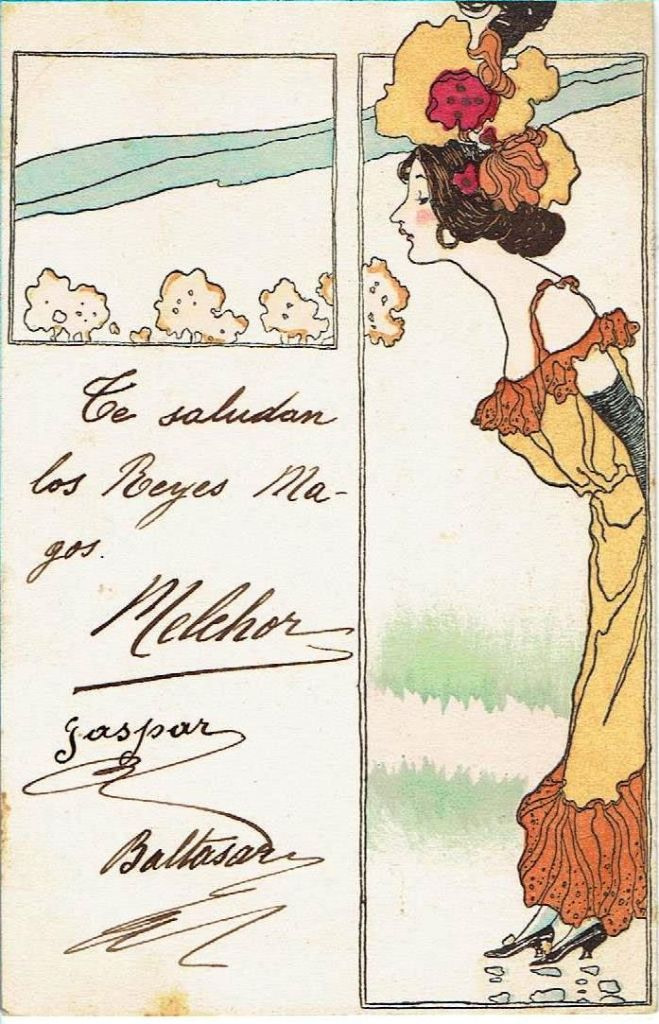 Te saludan
los Reyes Ma-
gos.
Melchor
Gaspar
Baltasar